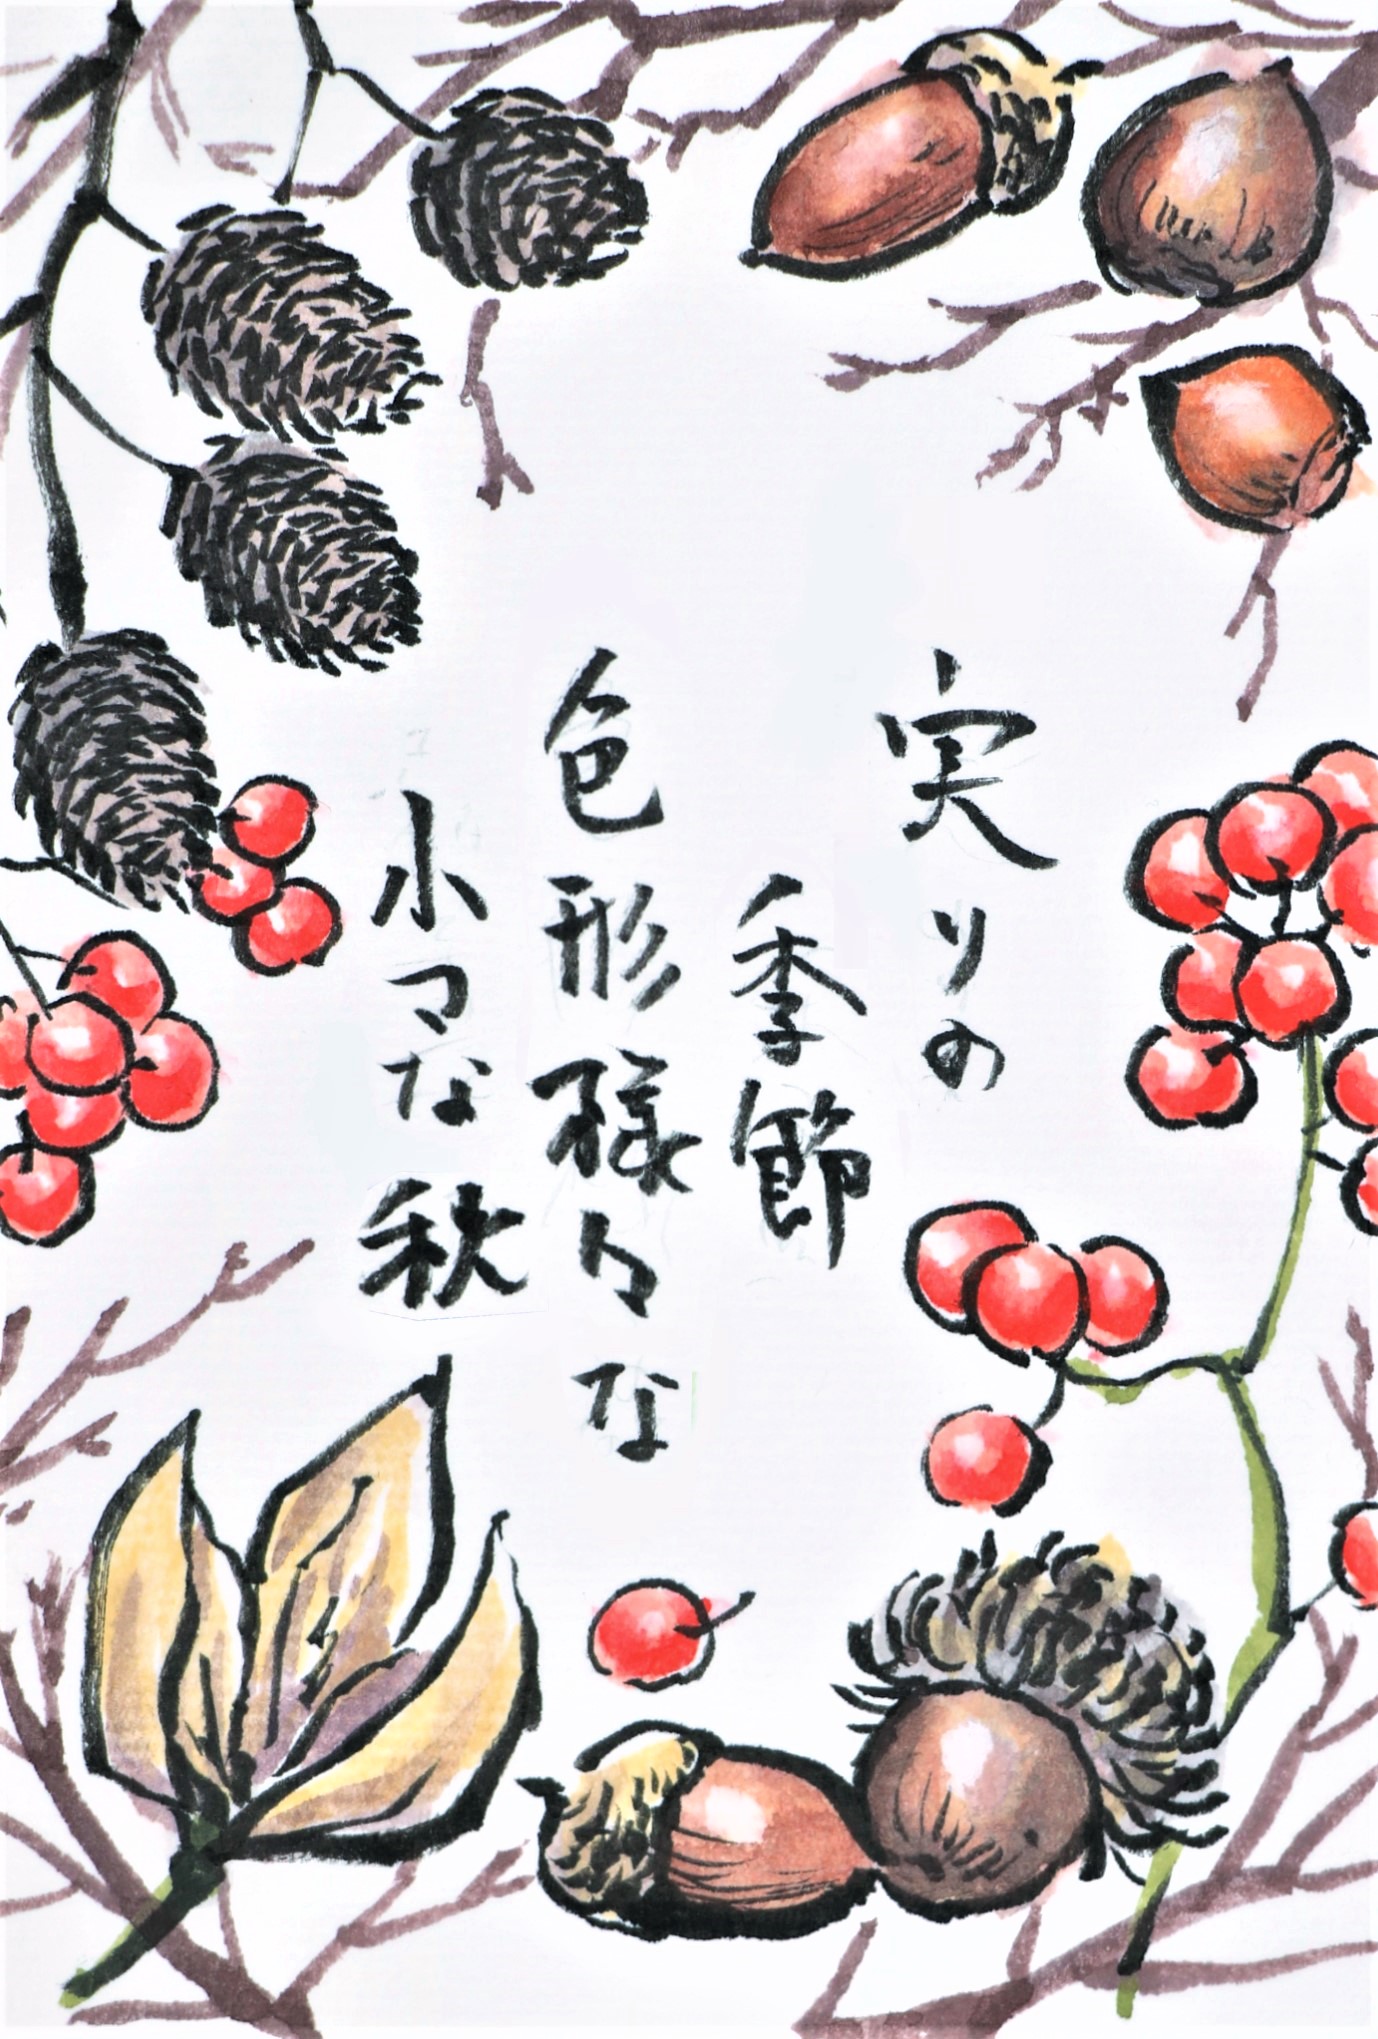 実りの
季節
色形様々な
小マな秋